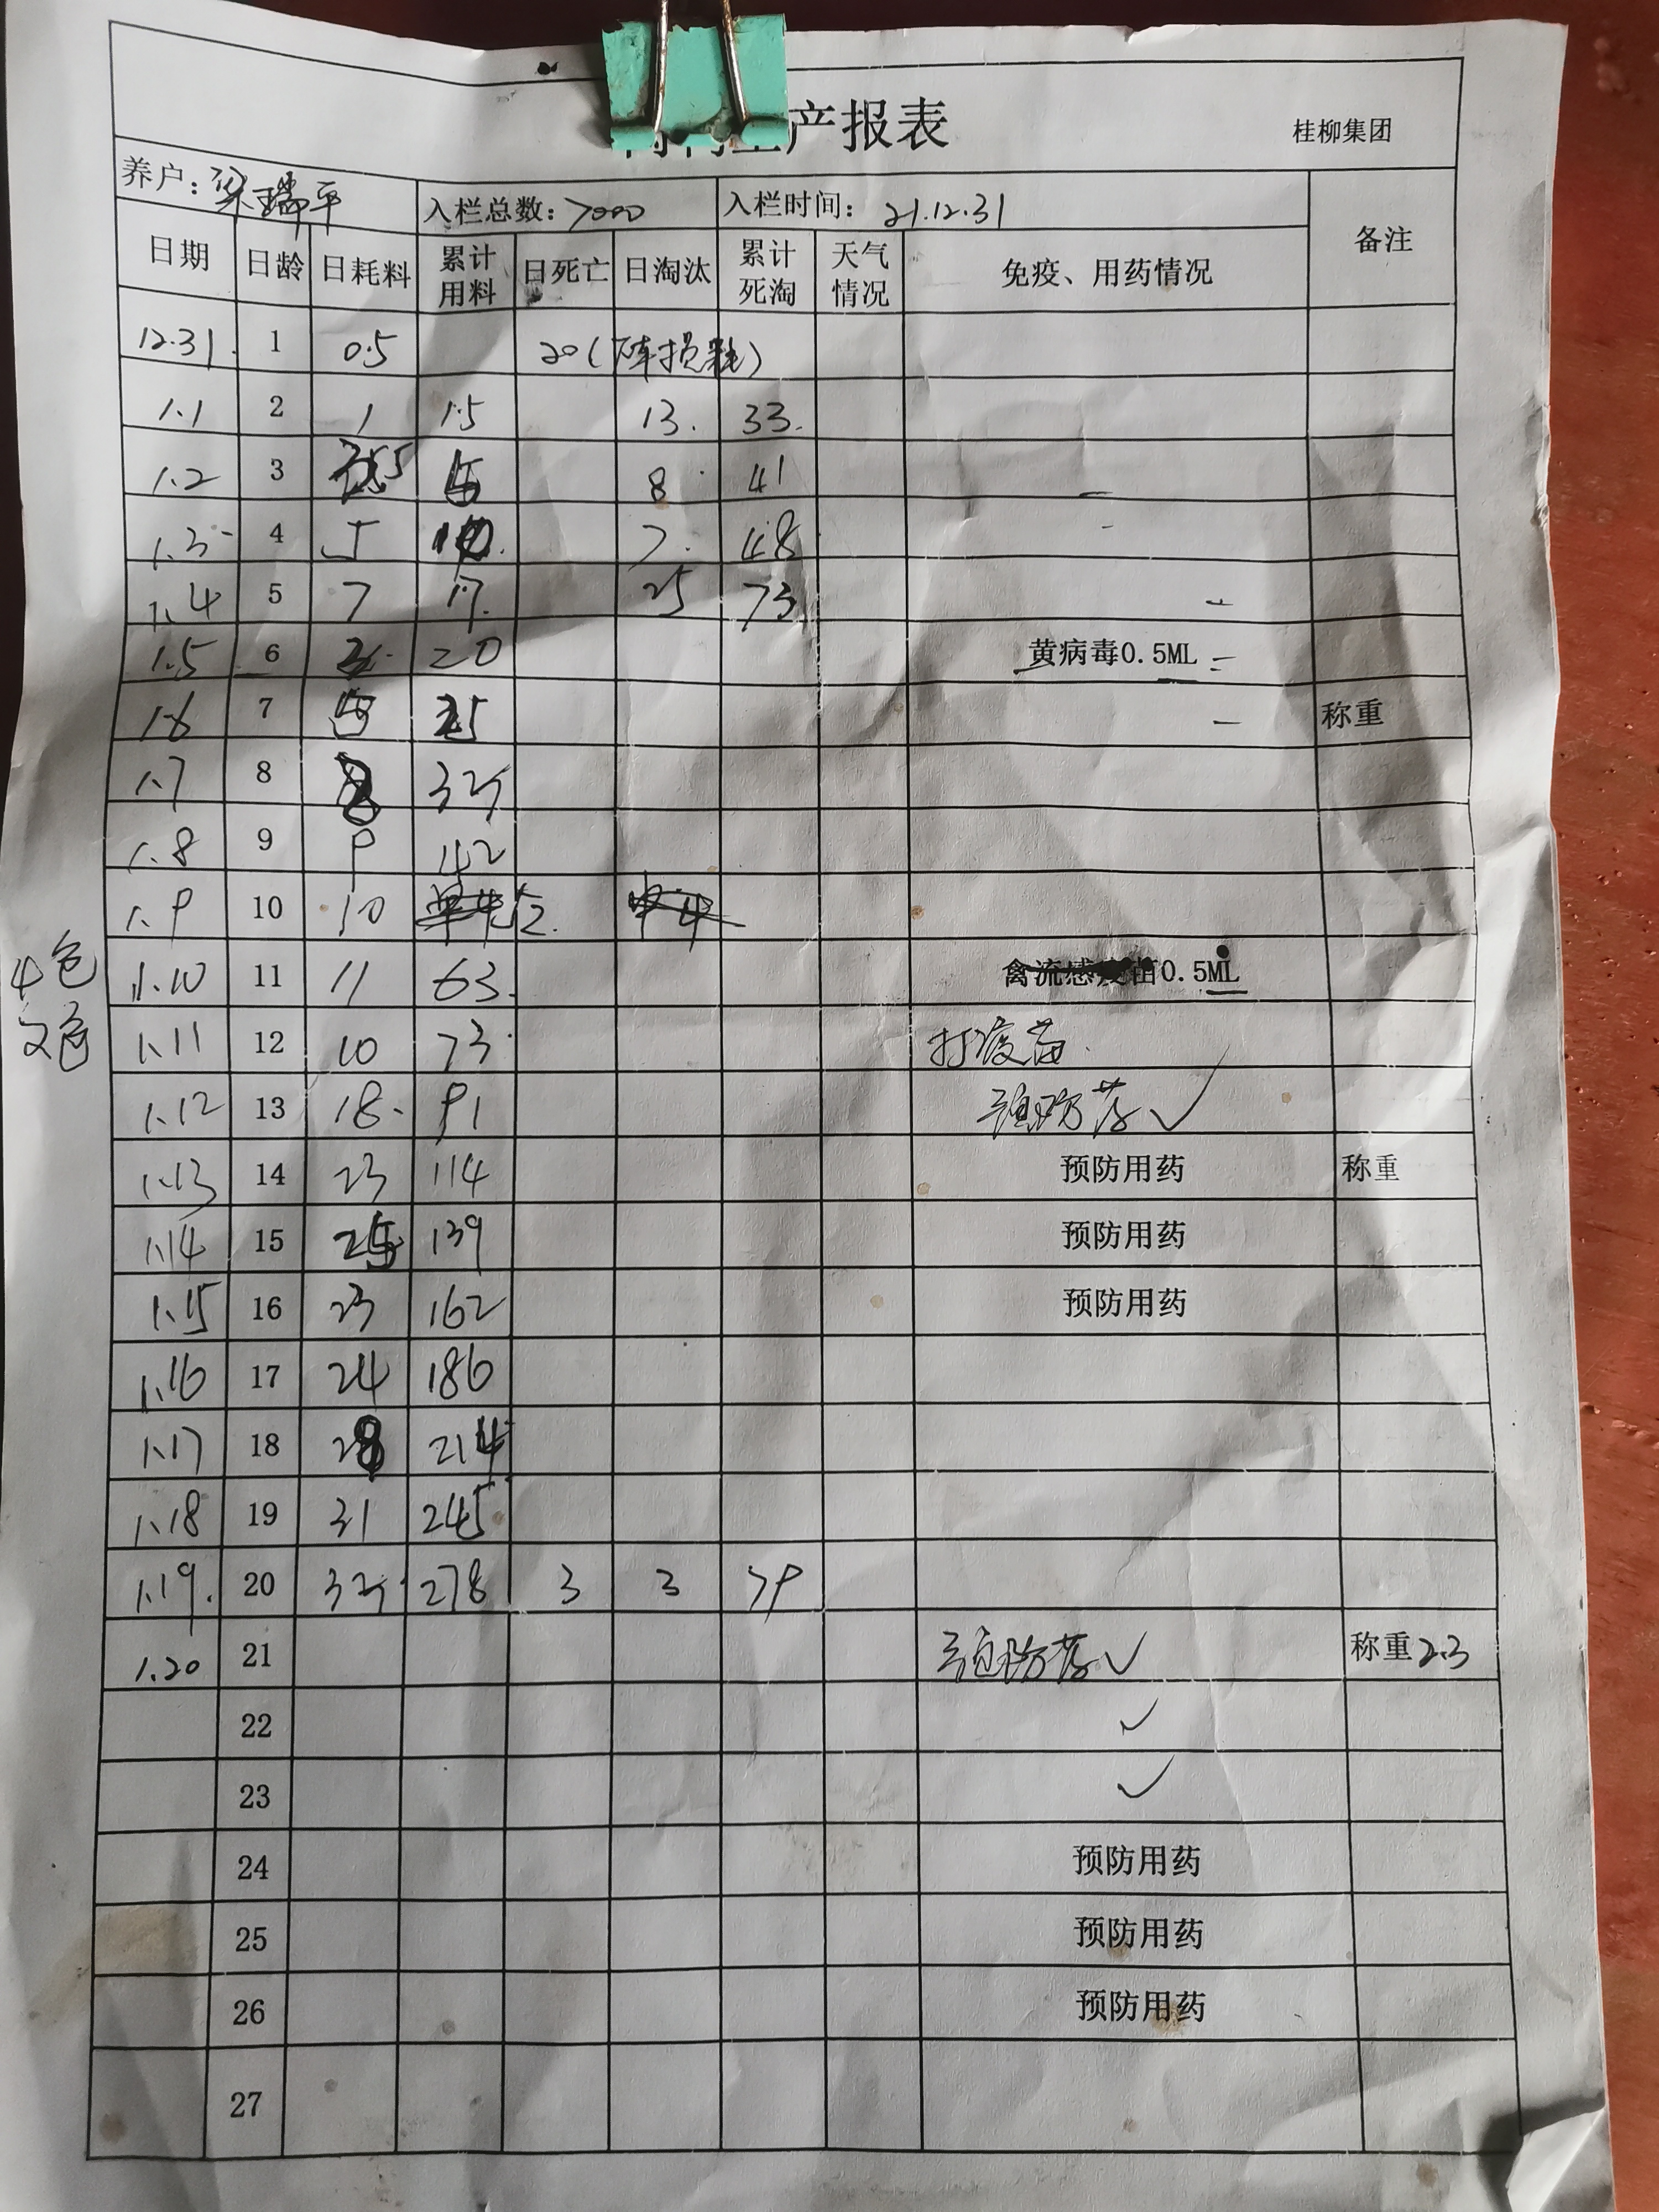 产报表
桂柳集团
养户：梁瑞平 入栏总数：7000 入栏时间：21.12.31 备注
日期 日龄 日耗料 累计用料 日死亡 日淘汰 累计死淘 天气情况 免疫、用药情况
12.31 1 0.5 20（损耗）
1.1 2 1 1.5 13. 33.
1.2 3 5 8 41
1.3 4 5 10. 7. 48
1.4 5 7 17. 25 73
1.5 6 20 黄病毒0.5ML
1.6 7 5 25 称重
1.7 8 8 33
1.8 9 9 42
1.9 10 10 52.
4包 1.10 11 11 63. 禽流感疫苗0.5ML
2包 1.11 12 10 73 打疫苗.
1.12 13 18 91 预防药√
1.13 14 23 114 预防用药 称重
1.14 15 25 139 预防用药
1.15 16 23 162 预防用药
1.16 17 24 186
1.17 18 28 214
1.18 19 31 245
1.19. 20 33 278 3 3 79
1.20 21 预防药√ 称重2.3
22 √
23 √
24 预防用药
25 预防用药
26 预防用药
27